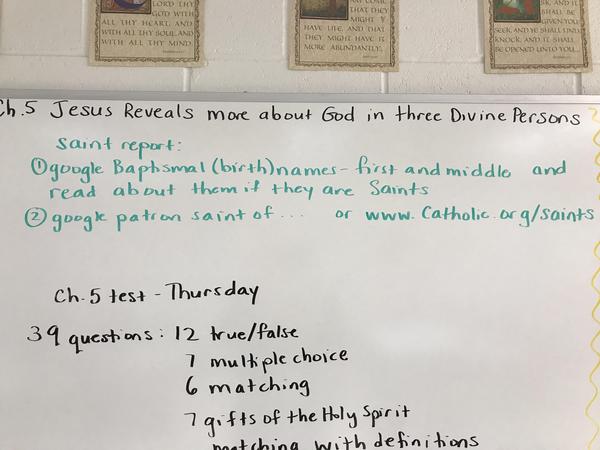 LORD THY
GOD WITH
ALL THY HEART, AND
WITH ALL THY SOUL, AND
WITH ALL THY MIND.
THAT THEY
MIGHT
HAVE LIFE, AND THAT
THEY MIGHT HAVE IT
MORE ABUNDANTLY.
SK, AND IT
SHALL BE
GIVEN YOU
SEEK, AND YE SHALL FIND
KNOCK, AND IT SHALL
BE OPENED UNTO YOU.
Ch.5 Jesus Reveals more about God in three Divine Persons
Saint report:
① google Baptismal (birth) names - first and middle and
read about them if they are Saints
② google patron saint of ... or www. Catholic.org/saints
Ch. 5 test - Thursday
39 questions: 12 true/false
7 multiple choice
6 matching
7 gifts of the Holy Spirit
matching with definitions